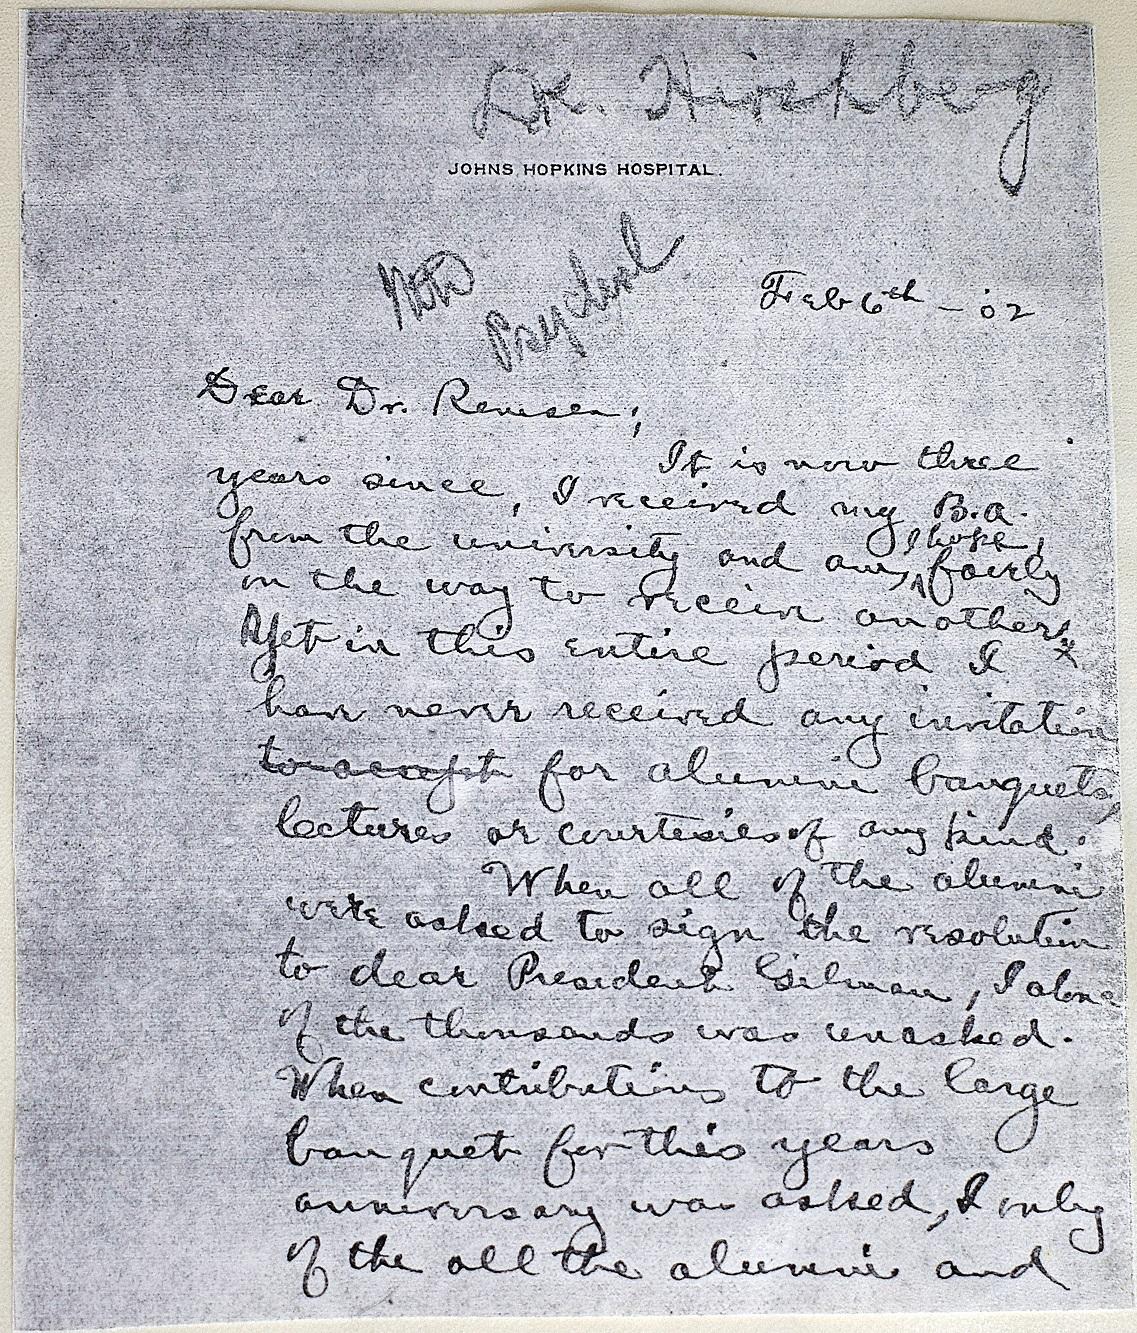 Dr. Hirschberg
JOHNS HOPKINS HOSPITAL.
Feb 6th - '02
Dear Dr. Remsen;
It is now three
years since, I received my B.A.
from the university and am, I hope, fairly
on the way to receive another.
Yet in this entire period I
have never received any invitation
to accept for alumni banquets,
lectures or courtesies of any kind.
When all of the alumni
were asked to sign the resolution
to dear President Gilman, I alone
of the thousands was unasked.
When contributions to the large
banquet for this years
anniversary was asked, I only
of the all the alumni and